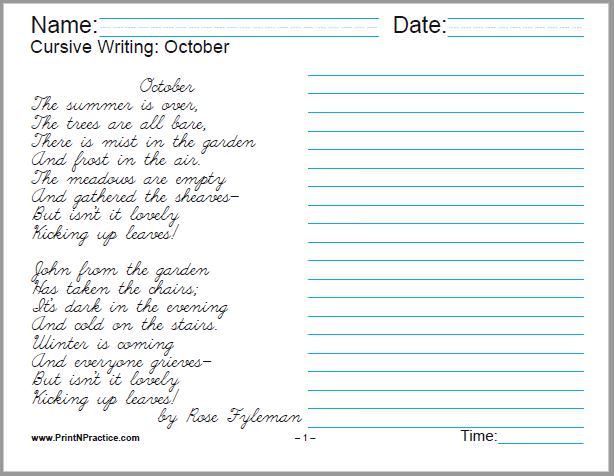 Name: Date:
Cursive Writing: October
October
The summer is over,
The trees are all bare,
There is mist in the garden
And frost in the air.
The meadows are empty
And gathered the sheaves–
But isn't it lovely
Kicking up leaves!
John from the garden
Has taken the chairs;
It's dark in the evening
And cold on the stairs.
Winter is coming
And everyone grieves–
But isn't it lovely
Kicking up leaves!
by Rose Fyleman
www.PrintNPractice.com – 1 – Time: